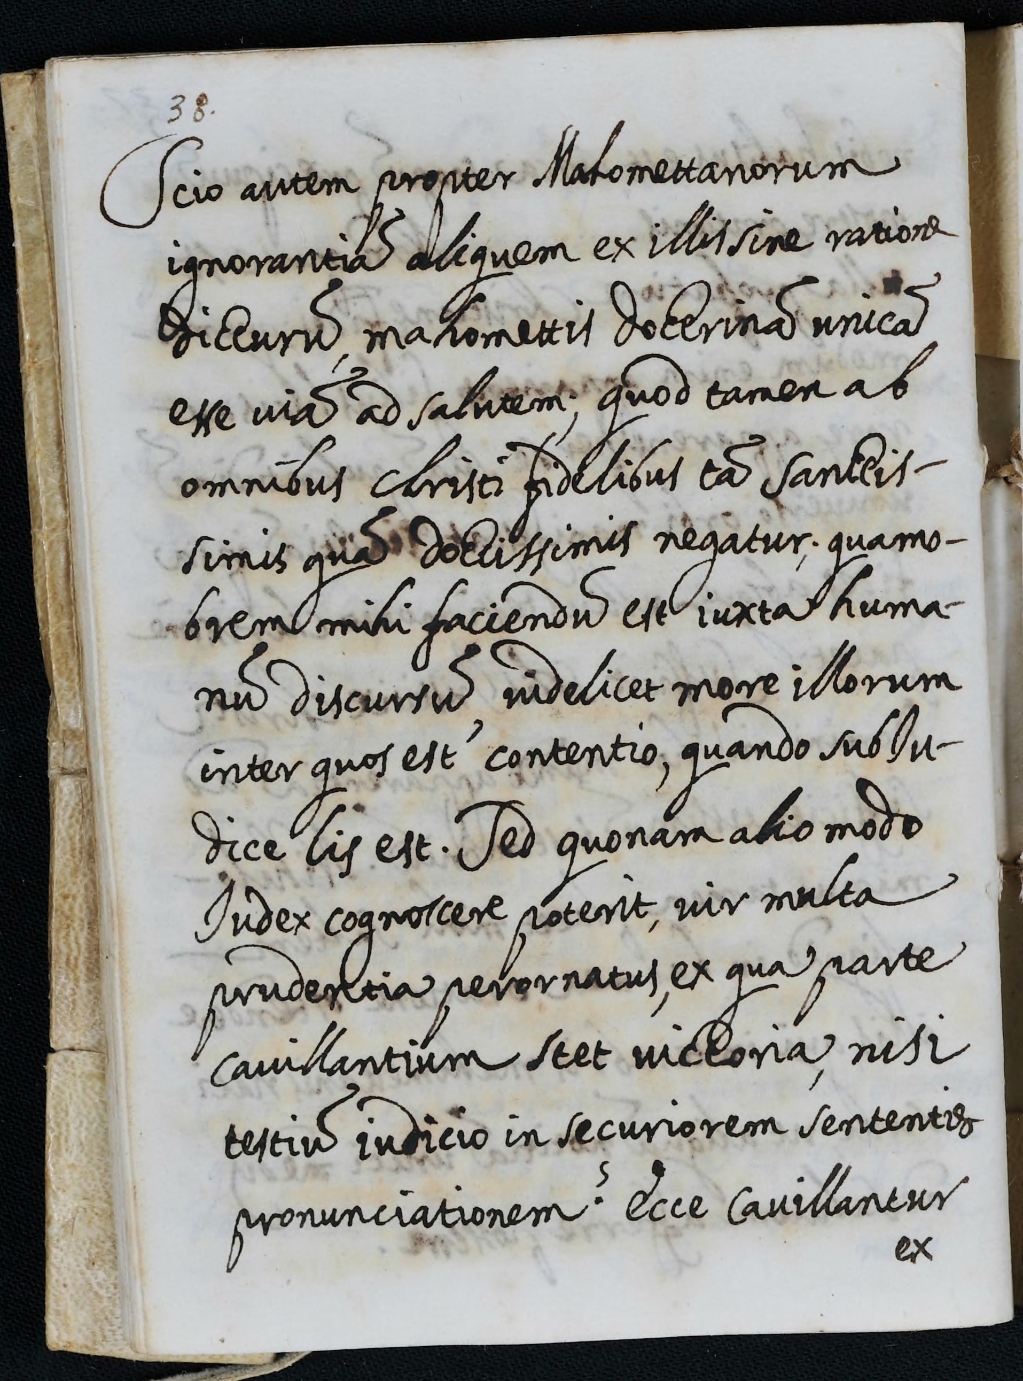 38.
Scio autem propter Mahomettanorum
ignorantiã aliquem ex illis sine ratione
dicturũ, mahomettis doctrinã unicã
esse uiã ad salutem; quod tamen ab
omnibus Christi fidelibus tã sanctis-
simis quã doctissimis negatur; quamo-
brem mihi faciendũ est iuxta huma-
nũ discursũ uidelicet more illorum
inter quos est contentio, quando sub Ju-
dice lis est. Sed quonam alio modo
Judex cognoscere poterit, uir multa
prudentia perornatus, ex qua parte
cauillantium stet uictoria, nisi
testiũ iudicio in securiorem sententię
pronunciationem? ecce cauillantur
ex